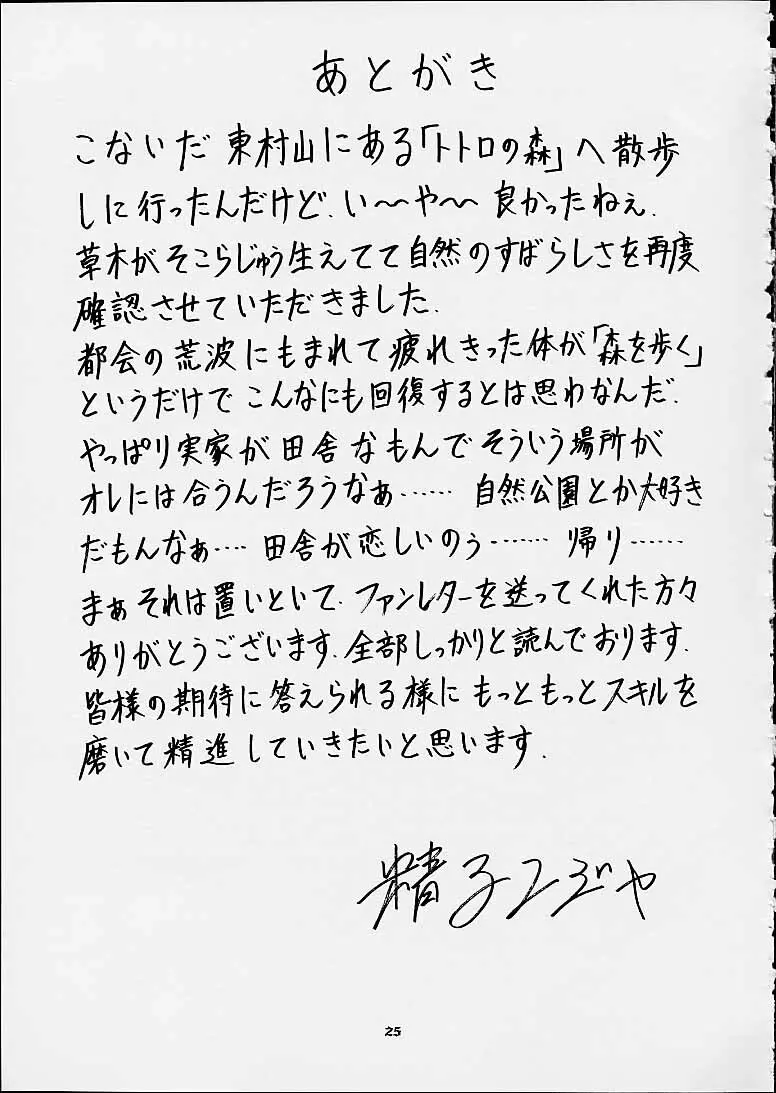 あとがき
こないだ東村山にある「トトロの森」へ散歩
しに行ったんだけど、い〜や〜良かったねぇ.
草木がそこらじゅう生えてて自然のすばらしさを再度
確認させていただきました.
都会の荒波にもまれて疲れきった体が「森を歩く」
というだけでこんなにも回復するとは思わなんだ.
やっぱり実家が田舎なもんでそういう場所が
オレには合うんだろうなぁ…… 自然公園とか大好き
だもんなぁ…. 田舎が恋しいのぅ…… 帰り……
まぁそれは置いといて、ファンレターを送ってくれた方々
ありがとうございます.全部しっかりと読んでおります.
皆様の期待に答えられる様にもっともっとスキルを
磨いて精進していきたいと思います.
精子
25